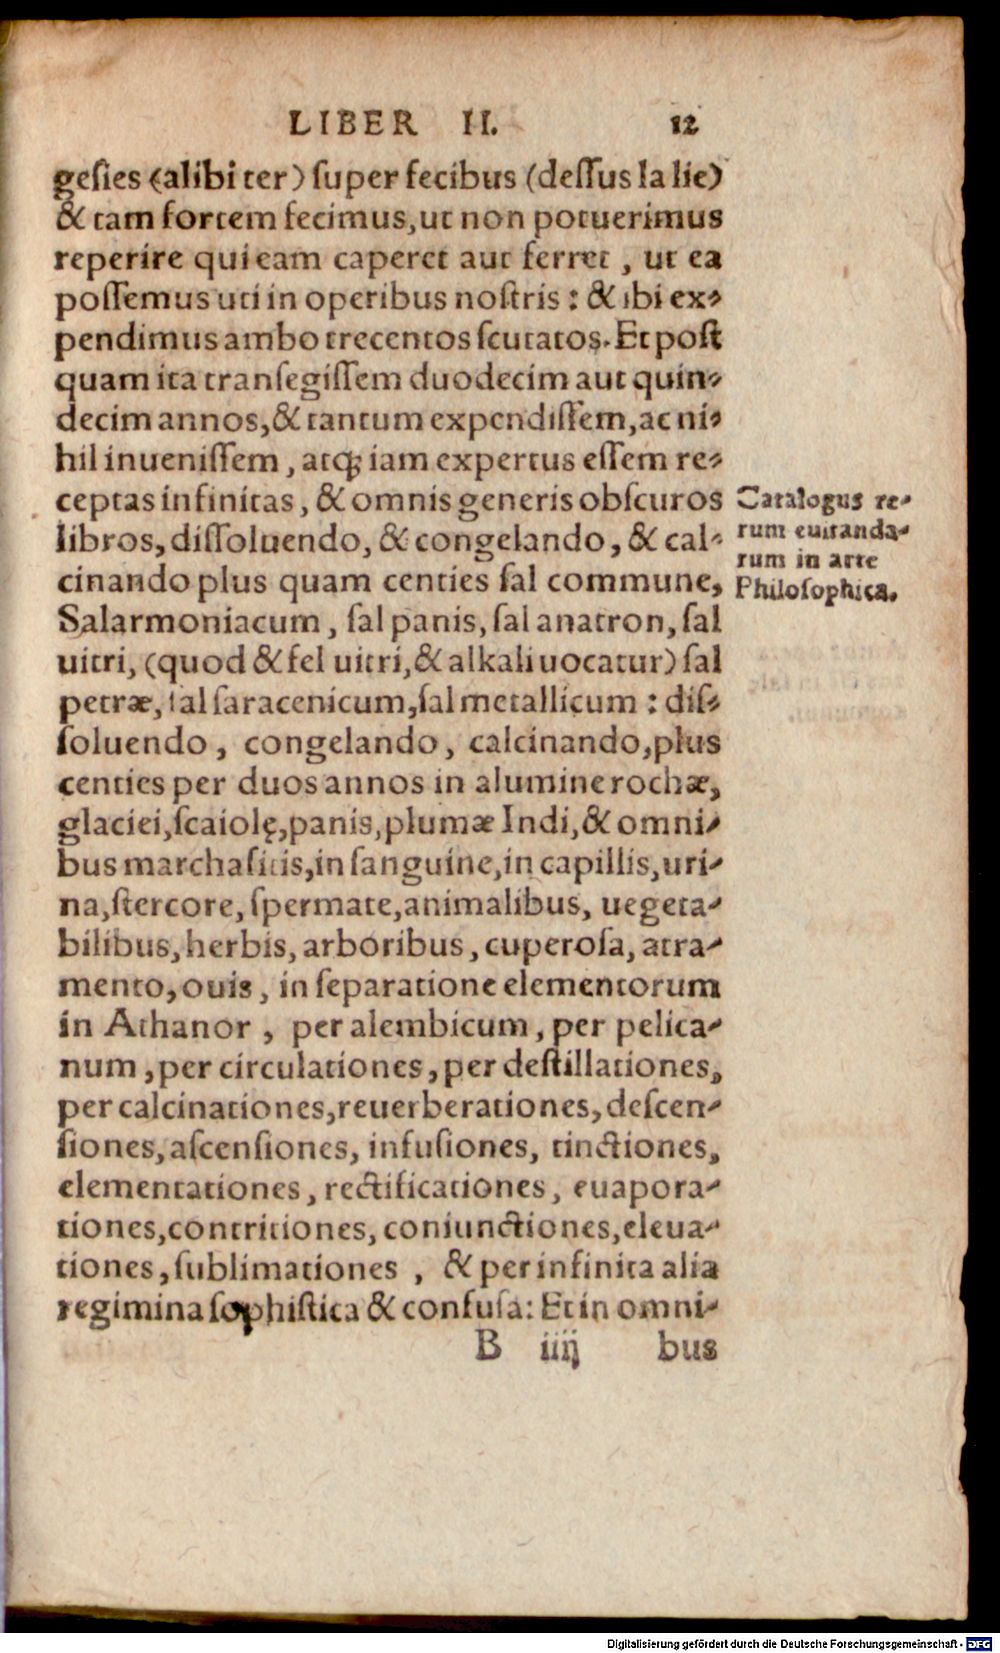 LIBER II. 12
gesies (alibi ter) super fecibus (dessus la lie)
& tam fortem fecimus, ut non potuerimus
reperire qui eam caperet aut ferret, ut ea
possemus uti in operibus nostris: & ibi ex-
pendimus ambo trecentos scutatos. Et post
quam ita transegissem duodecim aut quin-
decim annos, & tantum expendissem, ac ni-
hil inuenissem, atq; iam expertus essem re-
ceptas infinitas, & omnis generis obscuros
libros, dissoluendo, & congelando, & cal-
cinando plus quam centies sal commune,
Salarmoniacum, sal panis, sal anatron, sal
uitri, (quod & fel uitri, & alkali uocatur) sal
petræ, sal saracenicum, sal metallicum: dis-
soluendo, congelando, calcinando, plus
centies per duos annos in alumine rochæ,
glaciei, scaiolę, panis, plumæ Indi, & omni-
bus marchasitis, in sanguine, in capillis, uri-
na, stercore, spermate, animalibus, uegeta-
bilibus, herbis, arboribus, cuperosa, atra-
mento, ouis, in separatione elementorum
in Athanor, per alembicum, per pelica-
num, per circulationes, per destillationes,
per calcinationes, reuerberationes, descen-
siones, ascensiones, infusiones, tinctiones,
elementationes, rectificationes, euapora-
tiones, contritiones, coniunctiones, eleua-
tiones, sublimationes, & per infinita alia
regimina sophistica & confusa: Et in omni-
B iiij bus
Catalogus re-
rum euitanda-
rum in arte
Philosophica.
Digitalisierung gefördert durch die Deutsche Forschungsgemeinschaft - DFG